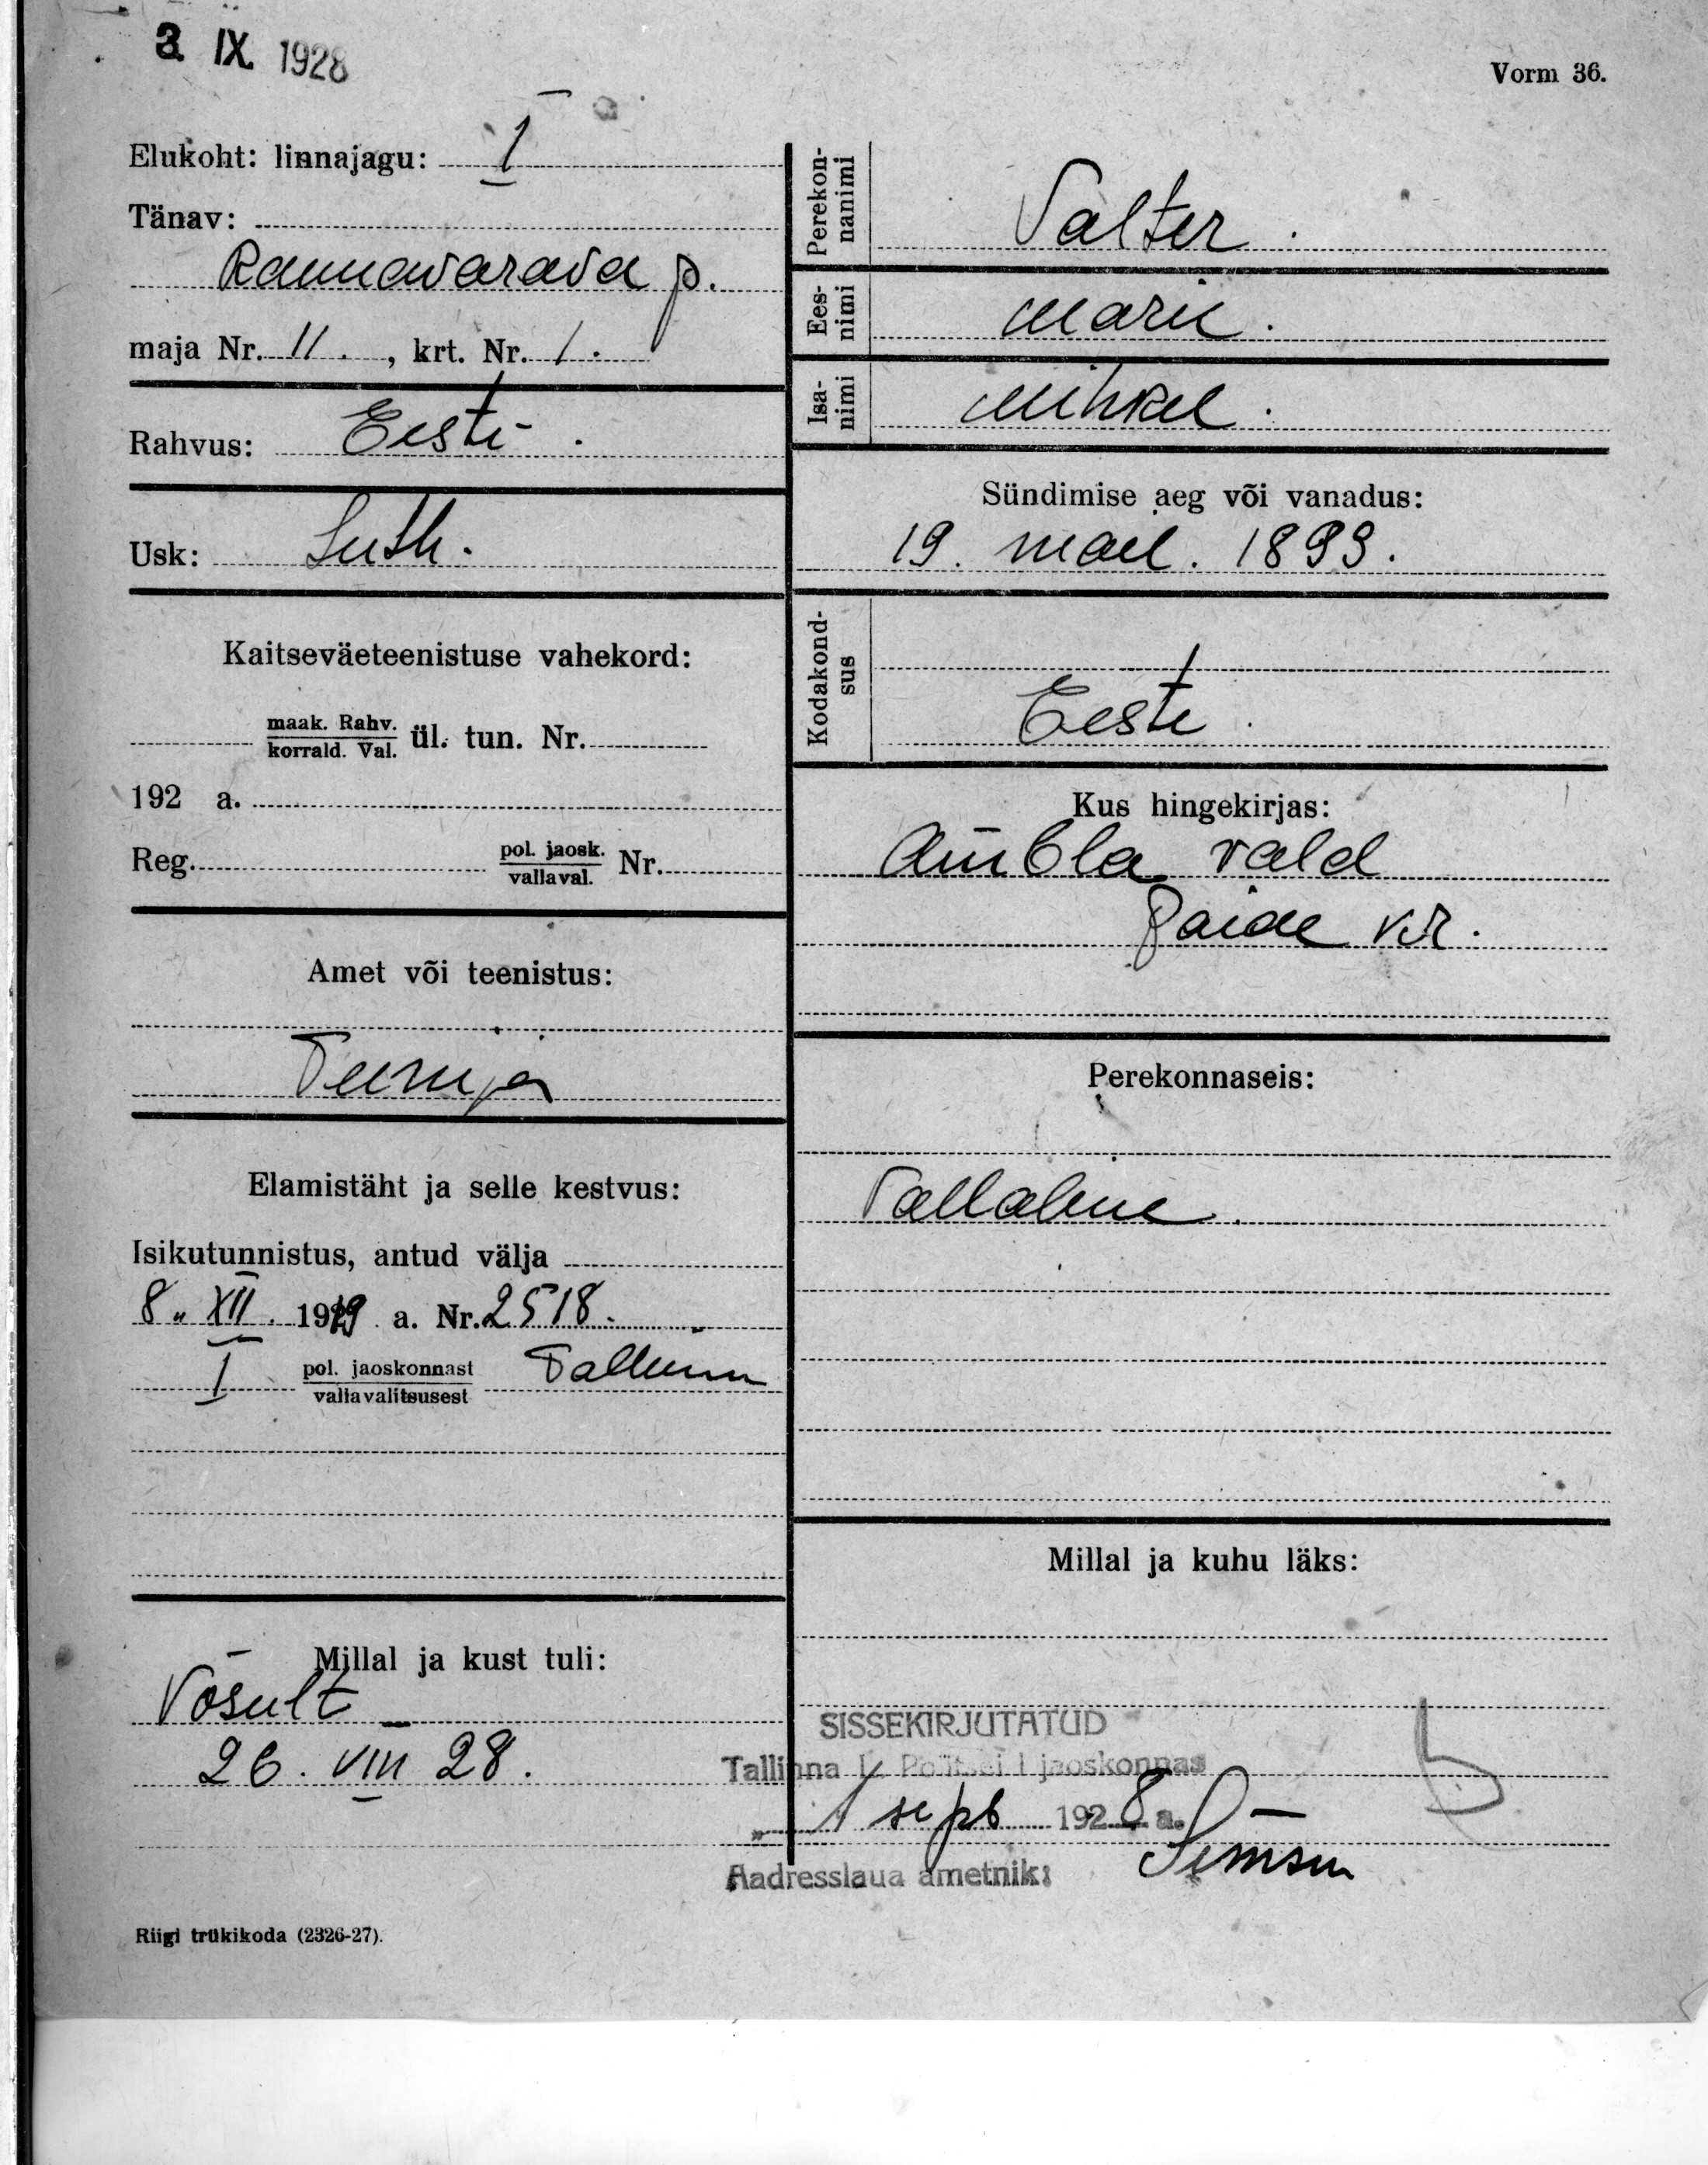 3. IX. 1928
Vorm 36.
Elukoht: linnajagu: I
Tänav:
Rannavärava p.
maja Nr. 11. , krt. Nr. 1.
Rahvus: Eesti.
Usk: Luth.
Kaitseväeteenistuse vahekord:
maak. Rahv.
korrald. Val. ül. tun. Nr.
192 a.
Reg. pol. jaosk.
vallaval. Nr.
Amet või teenistus:
Teenija
Elamistäht ja selle kestvus:
Isikutunnistus, antud välja
8. XII. 1919 a. Nr. 2518.
I pol. jaoskonnast Tallinn
vallavalitsusest
Millal ja kust tuli:
Võsult
26. VIII 28.
Riigi trükikoda (2326-27).
Perekon-
nanimi
Valter.
Ees-
nimi
Marie.
Isa-
nimi
Mihkel.
Sündimise aeg või vanadus:
19. mail. 1899.
Kodakond-
sus
Eesti.
Kus hingekirjas:
Ambla vald
Paide kr.
Perekonnaseis:
Vallaline.
Millal ja kuhu läks:
SISSEKIRJUTATUD
Tallinna L. Politsei I jaoskonnas
" 1 sept 1928 a.
Aadresslaua ametnik: